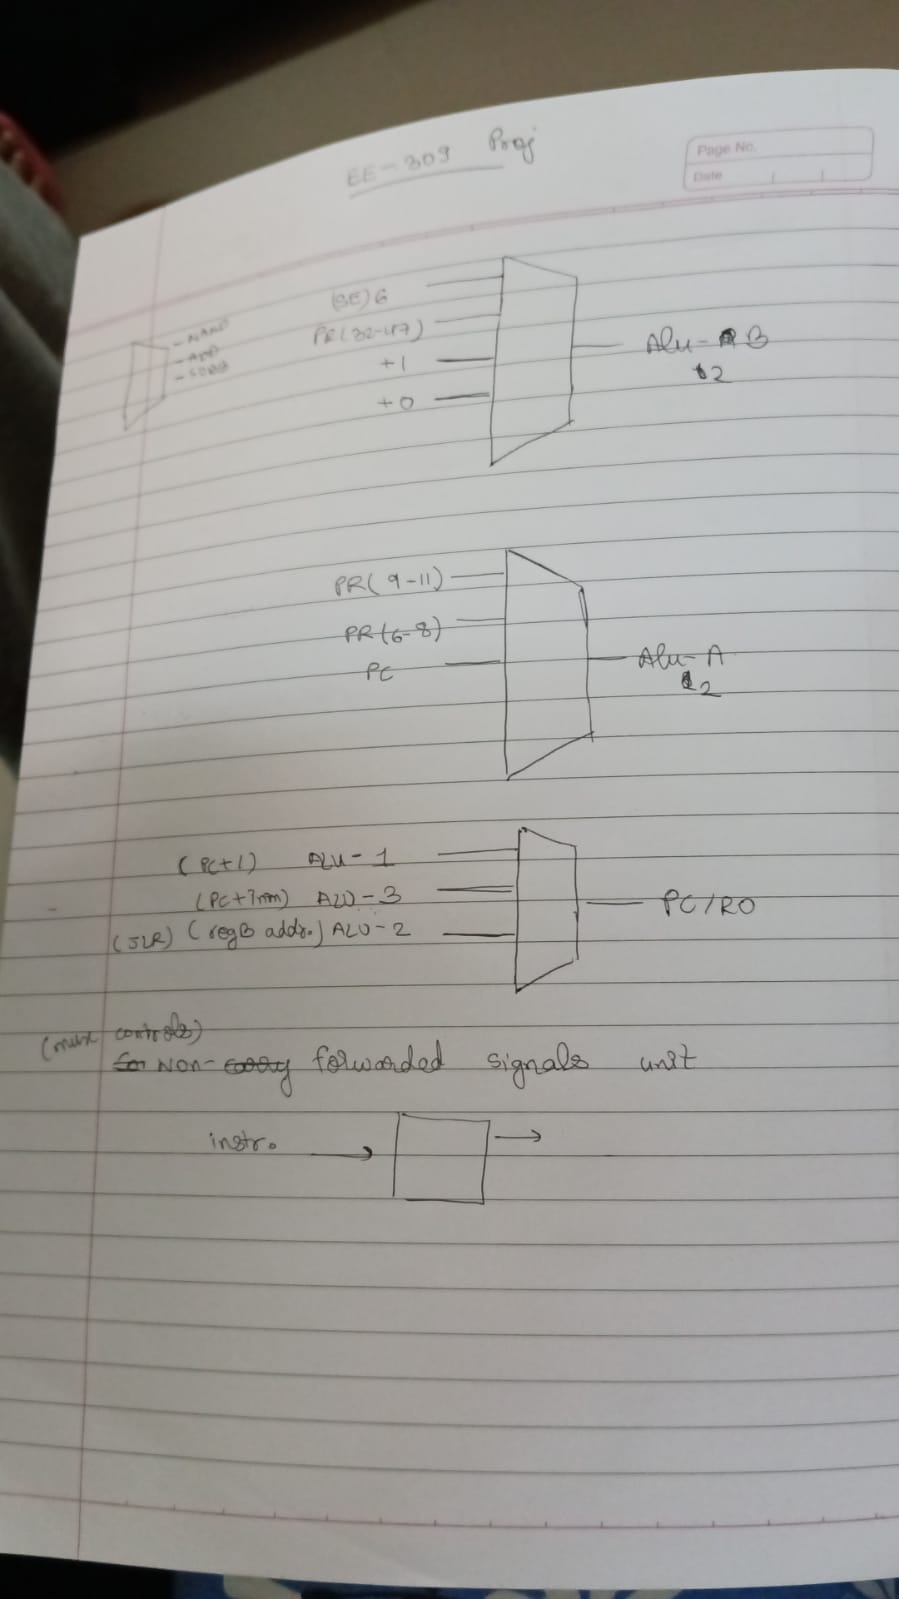 EE-309 Proj
Page No.
Date
- NAND
- ADD
(SE) 6
PR(32-47)
+1
+0
Alu-B
2
PR(9-11)
PR(6-8)
PC
Alu-A
2
(PC+1) ALU-1
(PC+Imm) ALU-3
(JLR) (regB addr.) ALU-2
PC/R0
(mux controls)
Non- forwarded signals unit
instr.